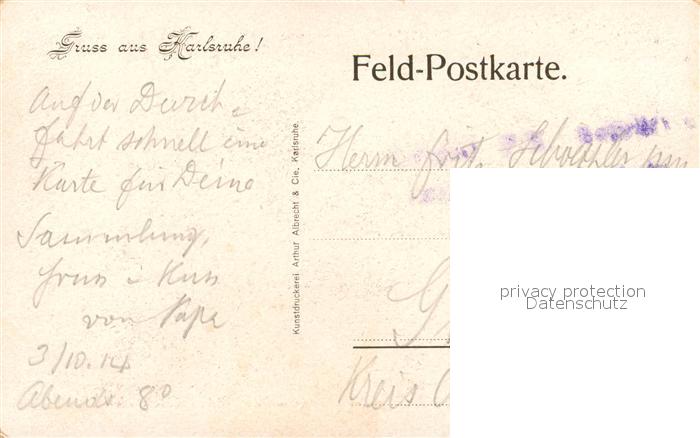 Gruss aus Karlsruhe!
Feld-Postkarte.
Auf der Durch-
fahrt schnell eine
Karte für Deine
Sammlung,
Gruss u Kuss
von Papa
3/10.14
Abends 8°
Kunstdruckerei Arthur Albrecht & Cie, Karlsruhe.
Herrn Fritz
Kreis
privacy protection
Datenschutz